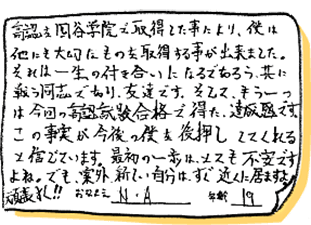 高認を四谷学院で取得した事により、僕は
他にも大切なものを取得する事が出来ました。
それは一生の付き合いになるであろう、共に
戦う同志であり、友達です。そして、もう一つ
は今回の高認試験合格で得た、達成感です。
この事実が今後の僕を後押ししてくれる
と信じています。最初の一歩は、とても不安です
よね。でも、案外、新しい自分は、すぐ近くに居ますよ。
頑張れし!! おなまえ N.A 年齢 19